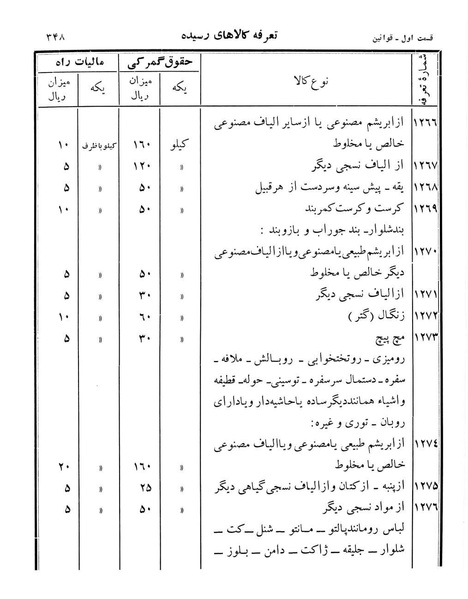 قسمت اول ــ قوانین تعرفه کالاهای رسیده ۳۴۸
شمارهٔ تعرفه نوع کالا حقوق گمرکی مالیات راه
یکه میزان ریال یکه میزان ریال
۱۲۶۶ از ابریشم مصنوعی یا از سایر الیاف مصنوعی
خالص یا مخلوط کیلو ۱۶۰ کیلو باظرف ۱۰
۱۲۶۷ از الیاف نسجی دیگر » ۱۲۰ » ۵
۱۲۶۸ یقه ــ پیش سینه وسردست از هرقبیل » ۵۰ » ۵
۱۲۶۹ کرست و کرست کمربند » ۵۰ » ۱۰
بندشلوارــ بند جوراب و بازوبند :
۱۲۷۰ از ابریشم طبیعی یا مصنوعی ویا از الیاف مصنوعی
دیگر خالص یا مخلوط » ۵۰ » ۵
۱۲۷۱ از الیاف نسجی دیگر » ۳۰ » ۵
۱۲۷۲ زنگال (گتر) » ۶۰ » ۱۰
۱۲۷۳ مچ پیچ » ۳۰ » ۵
رومیزی ــ روتختخوابی ــ روبالش ــ ملافه ــ
سفره ــ دستمال سرسفره ــ توسینی ــ حوله ــ قطیفه
واشیاء همانند دیگر ساده یا حاشیه‌دار ویا دارای
روبان ــ توری و غیره :
۱۲۷۴ از ابریشم طبیعی یا مصنوعی ویا الیاف مصنوعی
خالص یا مخلوط » ۱۶۰ » ۲۰
۱۲۷۵ ازپنبه ــ از کتان و از الیاف نسجی گیاهی دیگر » ۲۵ » ۵
۱۲۷۶ از مواد نسجی دیگر » ۵۰ » ۵
لباس رومانند پالتو ــ مانتو ــ شنل ــ کت ــ
شلوار ــ جلیقه ــ ژاکت ــ دامن ــ بلوز ــ